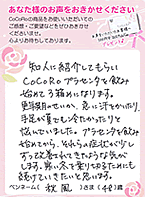 あなた様のお声をおきかせください
CoCoRoの商品をお使いいただいての
ご感想やご要望などをぜひおきかせ
くださいませ。
心よりお待ちしております。
プレゼント
知人に紹介してもらい
CoCoRoプラセンタを飲み
始めて3箱めになります。
更年期のせいか、急に汗をかいたり
手足が質も冷たかったりと
悩んでいました。プラセンタを飲み
始めてから、それらの症状が少し
ずつ改善されてきたような気がし
ます。寒い冬を乗りきるためにも
続けていきたいと思います。
ペンネーム( 秋風 )さま(48)歳